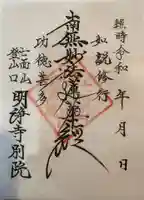 維時令和 年 月 日
如説修行
南無妙法蓮華経
功徳甚多
七面山
登山口
明淨寺別院